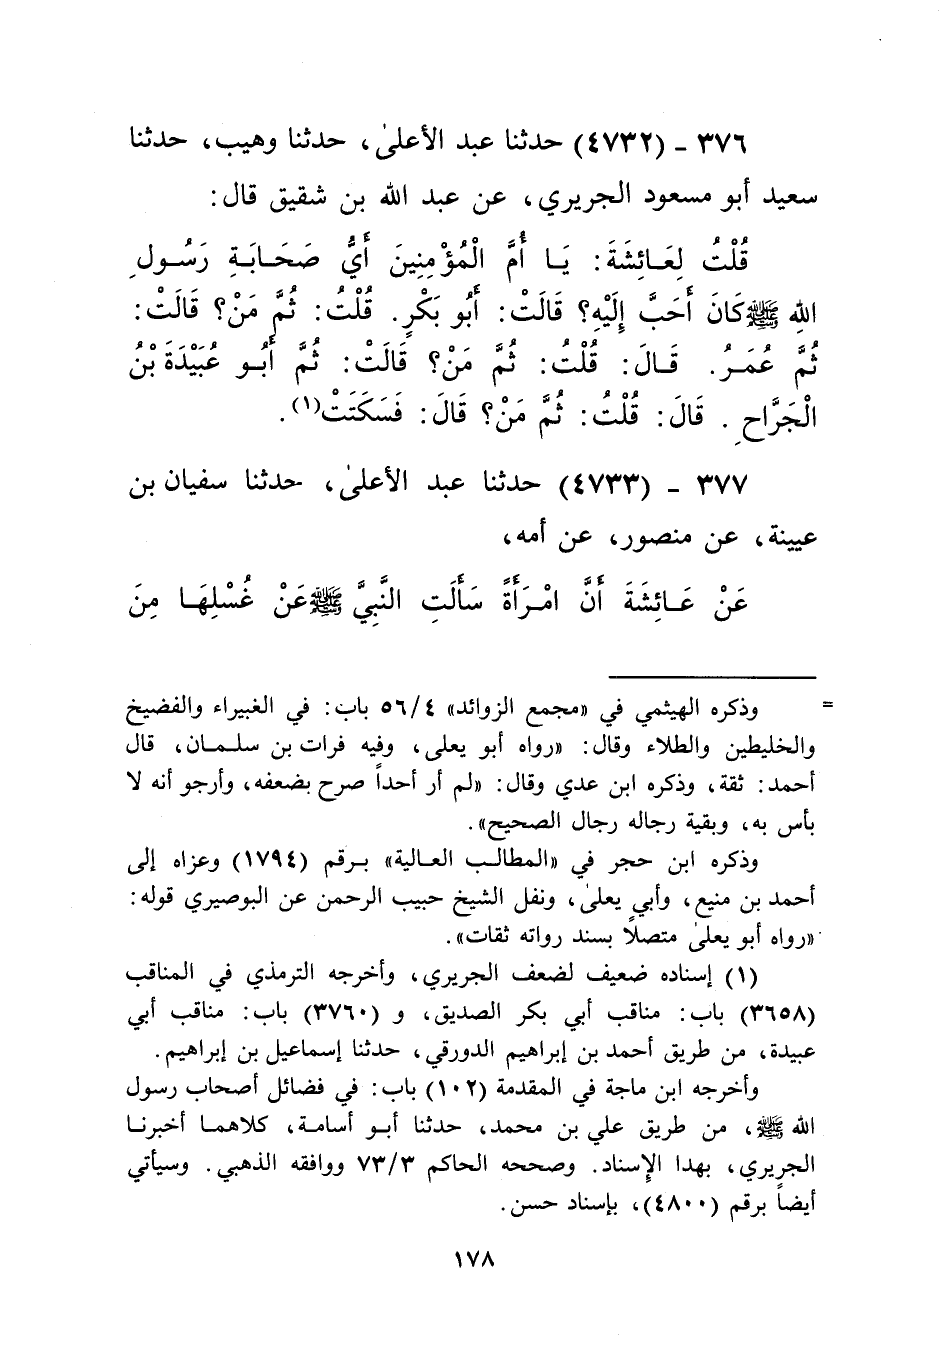 ٣٧٦ - (٤٧٣٢) حدثنا عبد الأعلىٰ، حدثنا وهيب، حدثنا
سعيد أبو مسعود الجريري، عن عبد الله بن شقيق قال:
قُلْتُ لِعَـائِشَةَ: يَـا أُمَّ الْمُؤْمِنِينَ أَيُّ صَحَـابَـةِ رَسُـولِ
اللهِ ﷺ كَانَ أَحَبَّ إِلَيْهِ؟ قَالَتْ: أَبُو بَكْرٍ. قُلْتُ: ثُمَّ مَنْ؟ قَالَتْ:
ثُمَّ عُمَـرُ. قَـالَ: قُلْتُ: ثُمَّ مَنْ؟ قَالَتْ: ثُمَّ أَبُـو عُبَيْدَةَ بْنُ
الْجَرَّاحِ. قَالَ: قُلْتُ: ثُمَّ مَنْ؟ قَالَ: فَسَكَتَتْ(١).
٣٧٧ - (٤٧٣٣) حدثنا عبد الأعلىٰ، حدثنا سفيان بن
عيينة، عن منصور، عن أمه،
عَنْ عَـائِشَةَ أَنَّ امْـرَأَةً سَأَلَتِ النَّبِيَّ ﷺ عَنْ غُسْلِهَـا مِنَ
= وذكره الهيثمي في «مجمع الزوائد» ٥٦/٤ باب: في الغبيراء والفضيخ
والخليطين والطلاء وقال: «رواه أبو يعلى، وفيه فرات بن سلـمـان، قال
أحمد: ثقة، وذكره ابن عدي وقال: «لم أر أحداً صرح بضعفه، وأرجو أنه لا
بأس به، وبقية رجاله رجال الصحيح».
وذكره ابن حجر في «المطالـب العـالية» بـرقم (١٧٩٤) وعزاه إلى
أحمد بن منيع، وأبي يعلىٰ، ونقل الشيخ حبيب الرحمن عن البوصيري قوله:
«رواه أبو يعلىٰ متصلاً بسند رواته ثقات».
(١) إسناده ضعيف لضعف الجريري، وأخرجه الترمذي في المناقب
(٣٦٥٨) باب: مناقب أبي بكر الصديق، و (٣٧٦٠) باب: مناقب أبي
عبيدة، من طريق أحمد بن إبراهيم الدورقي، حدثنا إسماعيل بن إبراهيم.
وأخرجه ابن ماجة في المقدمة (١٠٢) باب: في فضائل أصحاب رسول
الله ﷺ، من طريق علي بن محمد، حدثنا أبـو أسامـة، كلاهمـا أخبرنـا
الجريري، بهذا الإسناد. وصححه الحاكم ٧٣/٣ ووافقه الذهبي. وسيأتي
أيضاً برقم (٤٨٠٠)، بإسناد حسن.
١٧٨